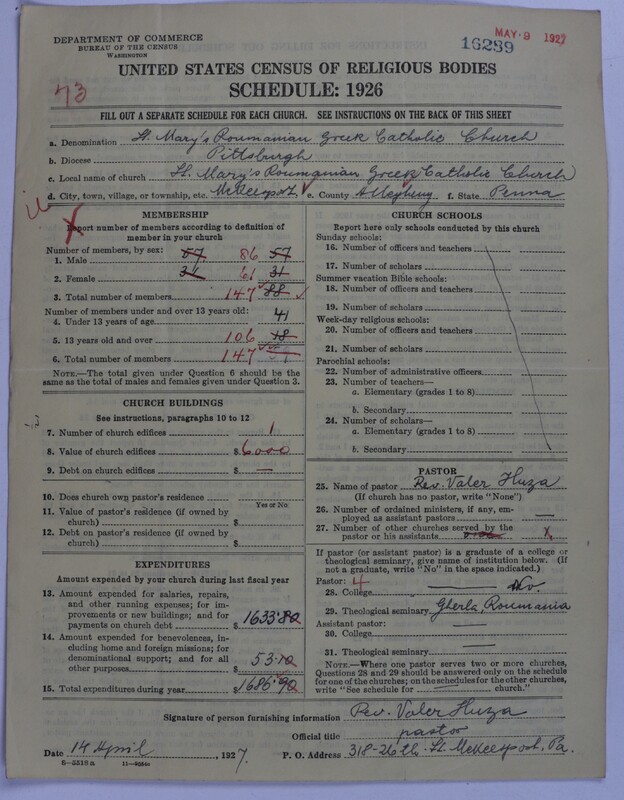 DEPARTMENT OF COMMERCE
BUREAU OF THE CENSUS
WASHINGTON
16239
MAY - 9 1927
UNITED STATES CENSUS OF RELIGIOUS BODIES
73
SCHEDULE: 1926
FILL OUT A SEPARATE SCHEDULE FOR EACH CHURCH. SEE INSTRUCTIONS ON THE BACK OF THIS SHEET
a. Denomination St. Mary's Roumanian Greek Catholic Church
b. Diocese Pittsburgh
c. Local name of church St. Mary's Roumanian Greek Catholic Church
d. City, town, village, or township, etc. McKeesport e. County Allegheny f. State Penna
MEMBERSHIP
Report number of members according to definition of member in your church
Number of members, by sex:
1. Male 57 86 57
2. Female 31 61 31
3. Total number of members 147 88
Number of members under and over 13 years old:
4. Under 13 years of age 41
5. 13 years old and over 106 48
6. Total number of members 147
NOTE.—The total given under Question 6 should be
same as the total of males and females given under Question 3.
CHURCH BUILDINGS
See instructions, paragraphs 10 to 12
7. Number of church edifices 1
8. Value of church edifices $6000
9. Debt on church edifices $ —
10. Does church own pastor's residence
Yes or No
11. Value of pastor's residence (if owned by
church) $
12. Debt on pastor's residence (if owned by
church) $
EXPENDITURES
Amount expended by your church during last fiscal year
13. Amount expended for salaries, repairs,
and other running expenses; for im-
provements or new buildings; and for
payments on church debt $1633.80
14. Amount expended for benevolences, in-
cluding home and foreign missions; for
denominational support; and for all
other purposes $53.10
15. Total expenditures during year $1686.90
CHURCH SCHOOLS
Report here only schools conducted by this church
Sunday schools:
16. Number of officers and teachers
17. Number of scholars
Summer vacation Bible schools:
18. Number of officers and teachers
19. Number of scholars
Week-day religious schools:
20. Number of officers and teachers
21. Number of scholars
Parochial schools:
22. Number of administrative officers
23. Number of teachers—
a. Elementary (grades 1 to 8)
b. Secondary
24. Number of scholars—
a. Elementary (grades 1 to 8)
b. Secondary
PASTOR
25. Name of pastor Rev. Valer Huza
(If church has no pastor, write "None")
26. Number of ordained ministers, if any, em-
ployed as assistant pastors —
27. Number of other churches served by the
pastor or his assistants X
If pastor (or assistant pastor) is a graduate of a college or
theological seminary, give name of institution below. (If
not a graduate, write "No" in the space indicated.)
Pastor: 4
28. College — No.
29. Theological seminary Gherla Roumania
Assistant pastor: —
30. College —
31. Theological seminary —
NOTE.—Where one pastor serves two or more churches,
Questions 28 and 29 should be answered only on the schedule
for one of the churches; on the schedules for the other churches,
write "See schedule for — church."
Signature of person furnishing information Rev. Valer Huza
Official title pastor
Date 14 April, 1927. P. O. Address 318-26th. St. McKeesport, Pa.
8-5510a 11-9054a